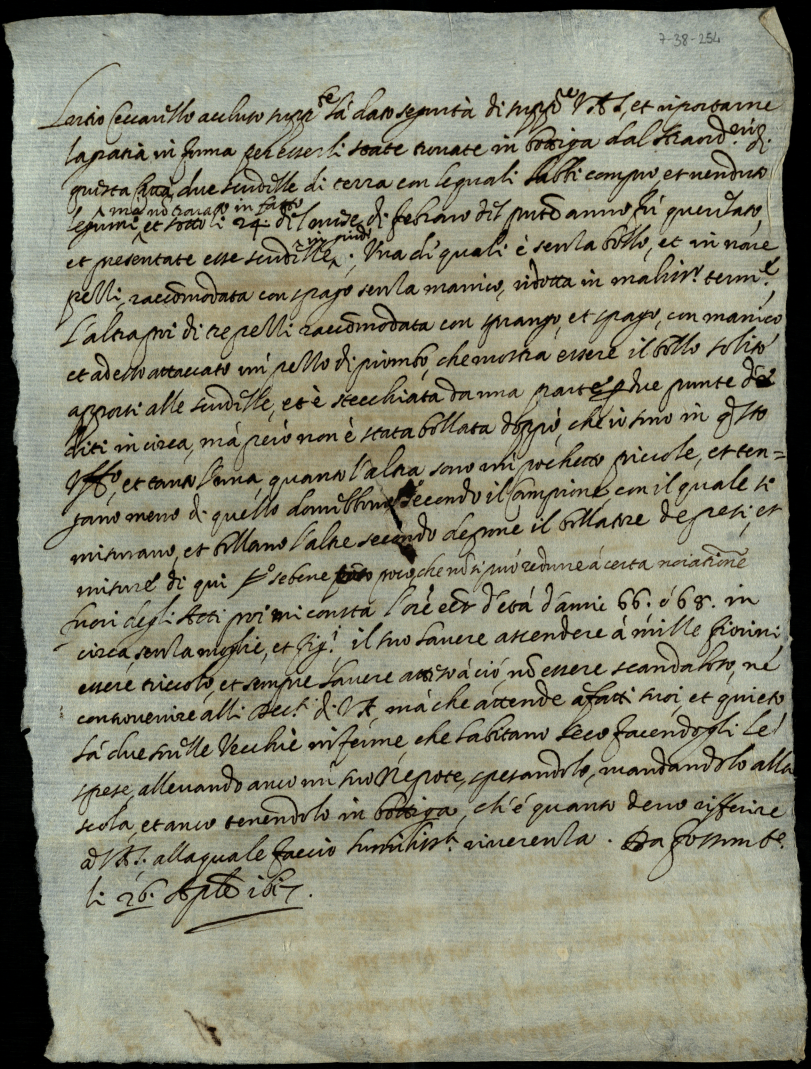 7-38-254
accluso supp.te hà dato segurtà di supp.re V.A.S. et riportarne
la gratia in forma per esserli state trovate in bottega dal
questa Città due scudelle di terra con le quali habbi compro et venduto
mà nõ trovato in fatto
legumi et sotto li 24 del mese di febraro del pñte anno fù querelato,
et presentate esse scudelle . Una di quali è senza bollo, et in nove
pezzi, raccõmodata con spago senza manico, ridotta in maliss.o term.e
L'altra poi di tre pezzi raccõmodata con et spago, con manico
et adesso attaccato un pezzo di piombo, che mostra essere il bollo solito
apporsi alle scudelle, et è stecchiata da una parte due punte de
diti in circa, mà però non è stata bollata doppò, che io sono in q.sto
Uff.o, et tanto l'una, quanto l'altra sono un pochetto piccole, et ten=
gano meno di quello dovrebbono secondo il Campione, con il quale si
misurano, et bollano l'altre secondo depone il bollatore de pesi, et
misure di qui sebene poco che nõ si può redurre à certa
fuori degli Atti poi mi consta l'ore d'età d'anni 66. ò 68. in
circa senza moglie, et fig.i il suo havere ascendere à mille fiorini
essere et sempre havere atteso à ciò nõ essere scandaloso, nè
controvenire alli Decr.i di V.A. mà che attende a fatti suoi, et quieto
hà due sorelle Vecchie inferme, che habitano seco facendogli le
spese, allevando anco un suo Nepote, spesandolo, mandandolo alla
scola, et anco tenendolo in bottega, ch'è quanto devo riferire
à V.A.S. alla quale faccio humiliss.a riverenza. Da fossomb.e
li 26. Aple 1617.